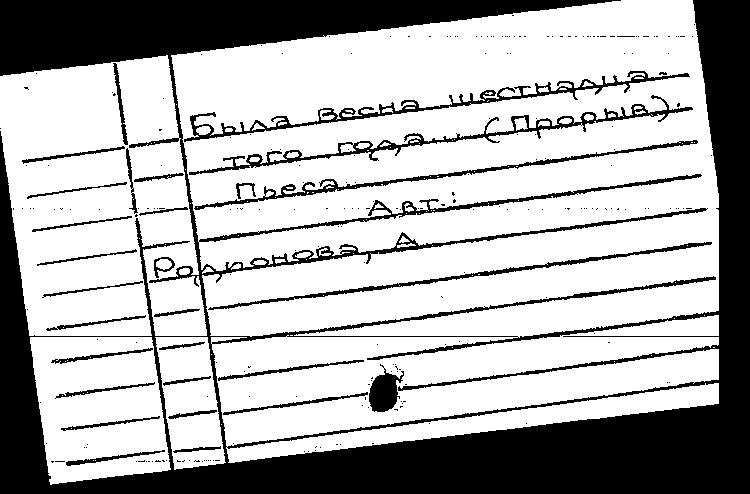 Была весна шестнадца-
того года... (Прорыв).
Пьеса.
Авт.:
Родионова, А